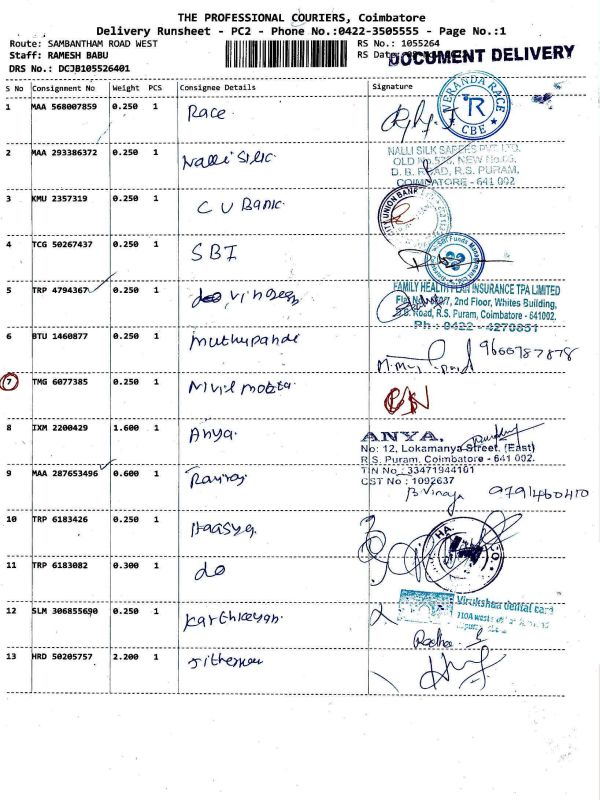 THE PROFESSIONAL COURIERS, Coimbatore
Delivery Runsheet - PC2 - Phone No.:0422-3505555 - Page No.:1
Route: SAMBANTHAM ROAD WEST
RS No.: 1055264
Staff: RAMESH BABU
RS Date:
DOCUMENT DELIVERY
DRS No.: DCJB105526401
S No Consignment No Weight PCS Consignee Details Signature
1 MAA 568007859 0.250 1 Race
VERANDA RACE
R
CBE
2 MAA 293386372 0.250 1 Nalli Silk
NALLI SILK SAREES PVT LTD.
OLD No. NEW No.
D. B. ROAD, R.S. PURAM,
COIMBATORE - 641 002
3 KMU 2357319 0.250 1 C U Bank
CITY UNION BANK
4 TCG 50267437 0.250 1 SBI
SBI Funds Management
5 TRP 4794367 0.250 1
FAMILY HEALTH PLAN INSURANCE TPA LIMITED
2nd Floor, Whites Building,
D.B. Road, R.S. Puram, Coimbatore - 641002.
Ph : 0422 - 4270851
6 BTU 1460877 0.250 1 Muthupandi
9600787878
7 TMG 6077385 0.250 1
8 IXM 2200429 1.600 1 Anya
ANYA,
No: 12, Lokamanya Street, (East)
R.S. Puram, Coimbatore - 641 002.
TIN No : 33471944101
CST No : 1092637
9 MAA 287653496 0.600 1
B. Vinaya
10 TRP 6183426 0.250 1 Haasya
11 TRP 6183082 0.300 1 do
12 SLM 306855690 0.250 1 Karthikeyan
Virukshaa dental care
Radha. S
13 HRD 50205757 2.200 1